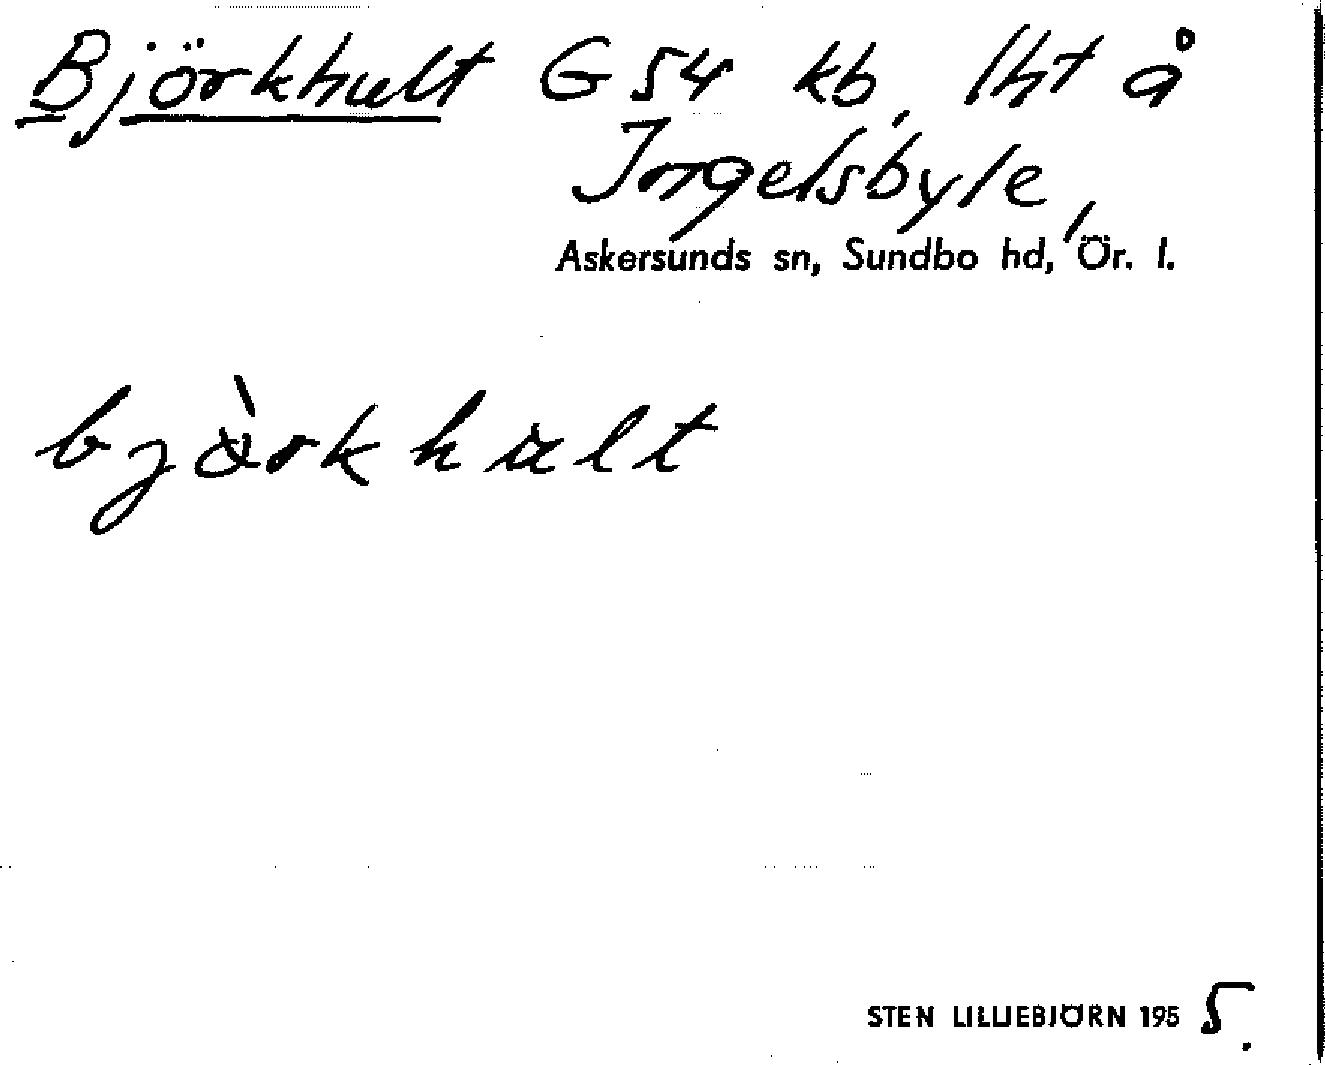 Björkhult G54 kb, lht å
Ingelsbyle,
Askersunds sn, Sundbo hd, Ör. l.
STEN LILLIEBJÖRN 195 5.